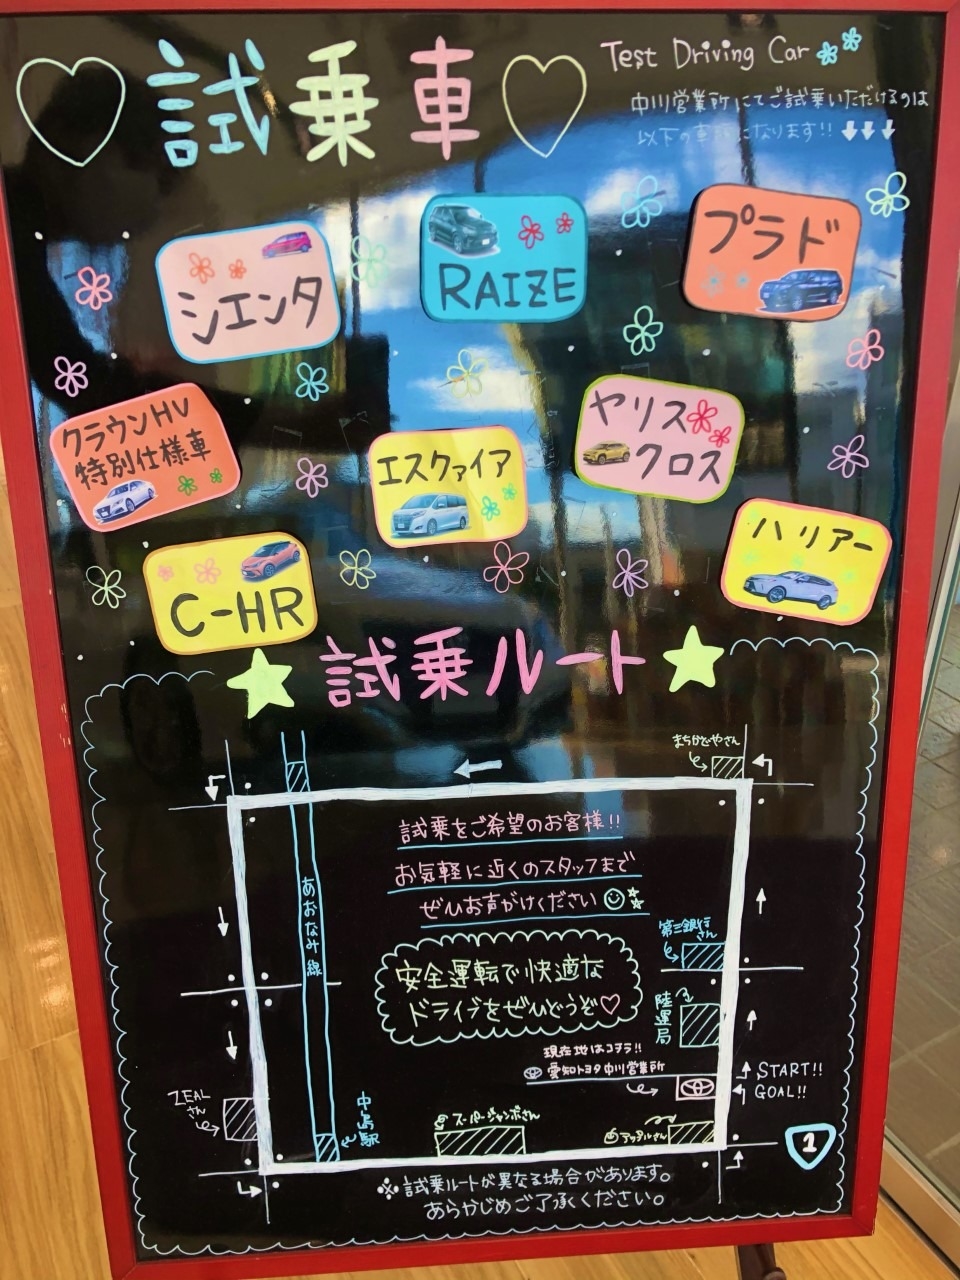 試乗車
Test Driving Car
中川営業所にてご試乗いただけるのは
以下の車両になります!!
シエンタ
RAIZE
プラド
クラウンHV
特別仕様車
エスクァイア
ヤリス
クロス
C-HR
ハリアー
試乗ルート
まちかどやさん
試乗をご希望のお客様!!
お気軽に近くのスタッフまで
ぜひお声がけください
あおなみ線
第三銀行
さん
安全運転で快適な
ドライブをぜひどうぞ♡
陸運局
現在地はコチラ!!
愛知トヨタ中川営業所
START!!
GOAL!!
ZEAL
さん
中島駅
スーパージャンボさん
アップルさん
1
※試乗ルートが異なる場合があります。
あらかじめご了承ください。